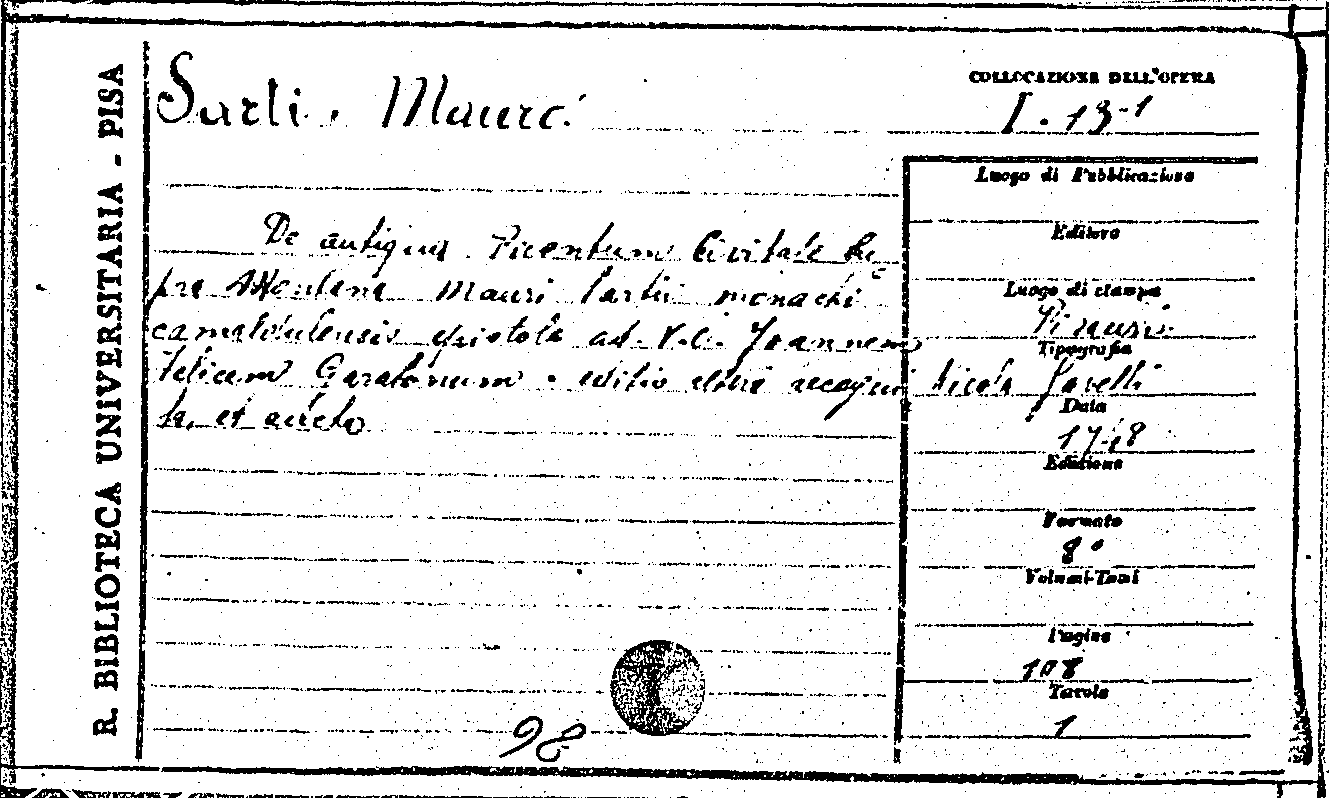 R. BIBLIOTECA UNIVERSITARIA - PISA
Sarti. Mauro.
COLLOCAZIONE DELL'OPERA
I. 13-1
De antiqua Picentum Civitate Cu
pra Montana Mauri Sartii monachi
camaldulensis epistola ad V.C. Joannem
Felicem Garatonum. editio altera recogni
ta, et aucta
Luogo di Pubblicazione
Editore
Luogo di stampa
Pisauri
Tipografia
Nicola Gavelli
Data
1748
Edizione
Formato
8°
Volumi-Tomi
Pagine
108
Tavole
1
98